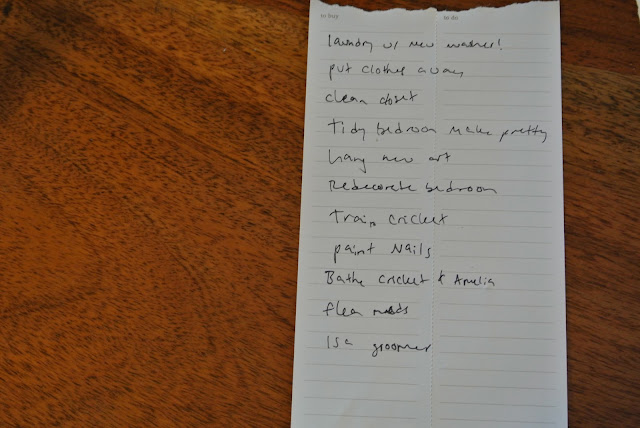 to buy to do
laundry w/ new washer!
put clothes away
clean closet
Tidy bedroom Make pretty
hang new art
Redecorate bedroom
Train Cricket
paint Nails
Bathe Cricket & Amelia
flea meds
Isa groomer